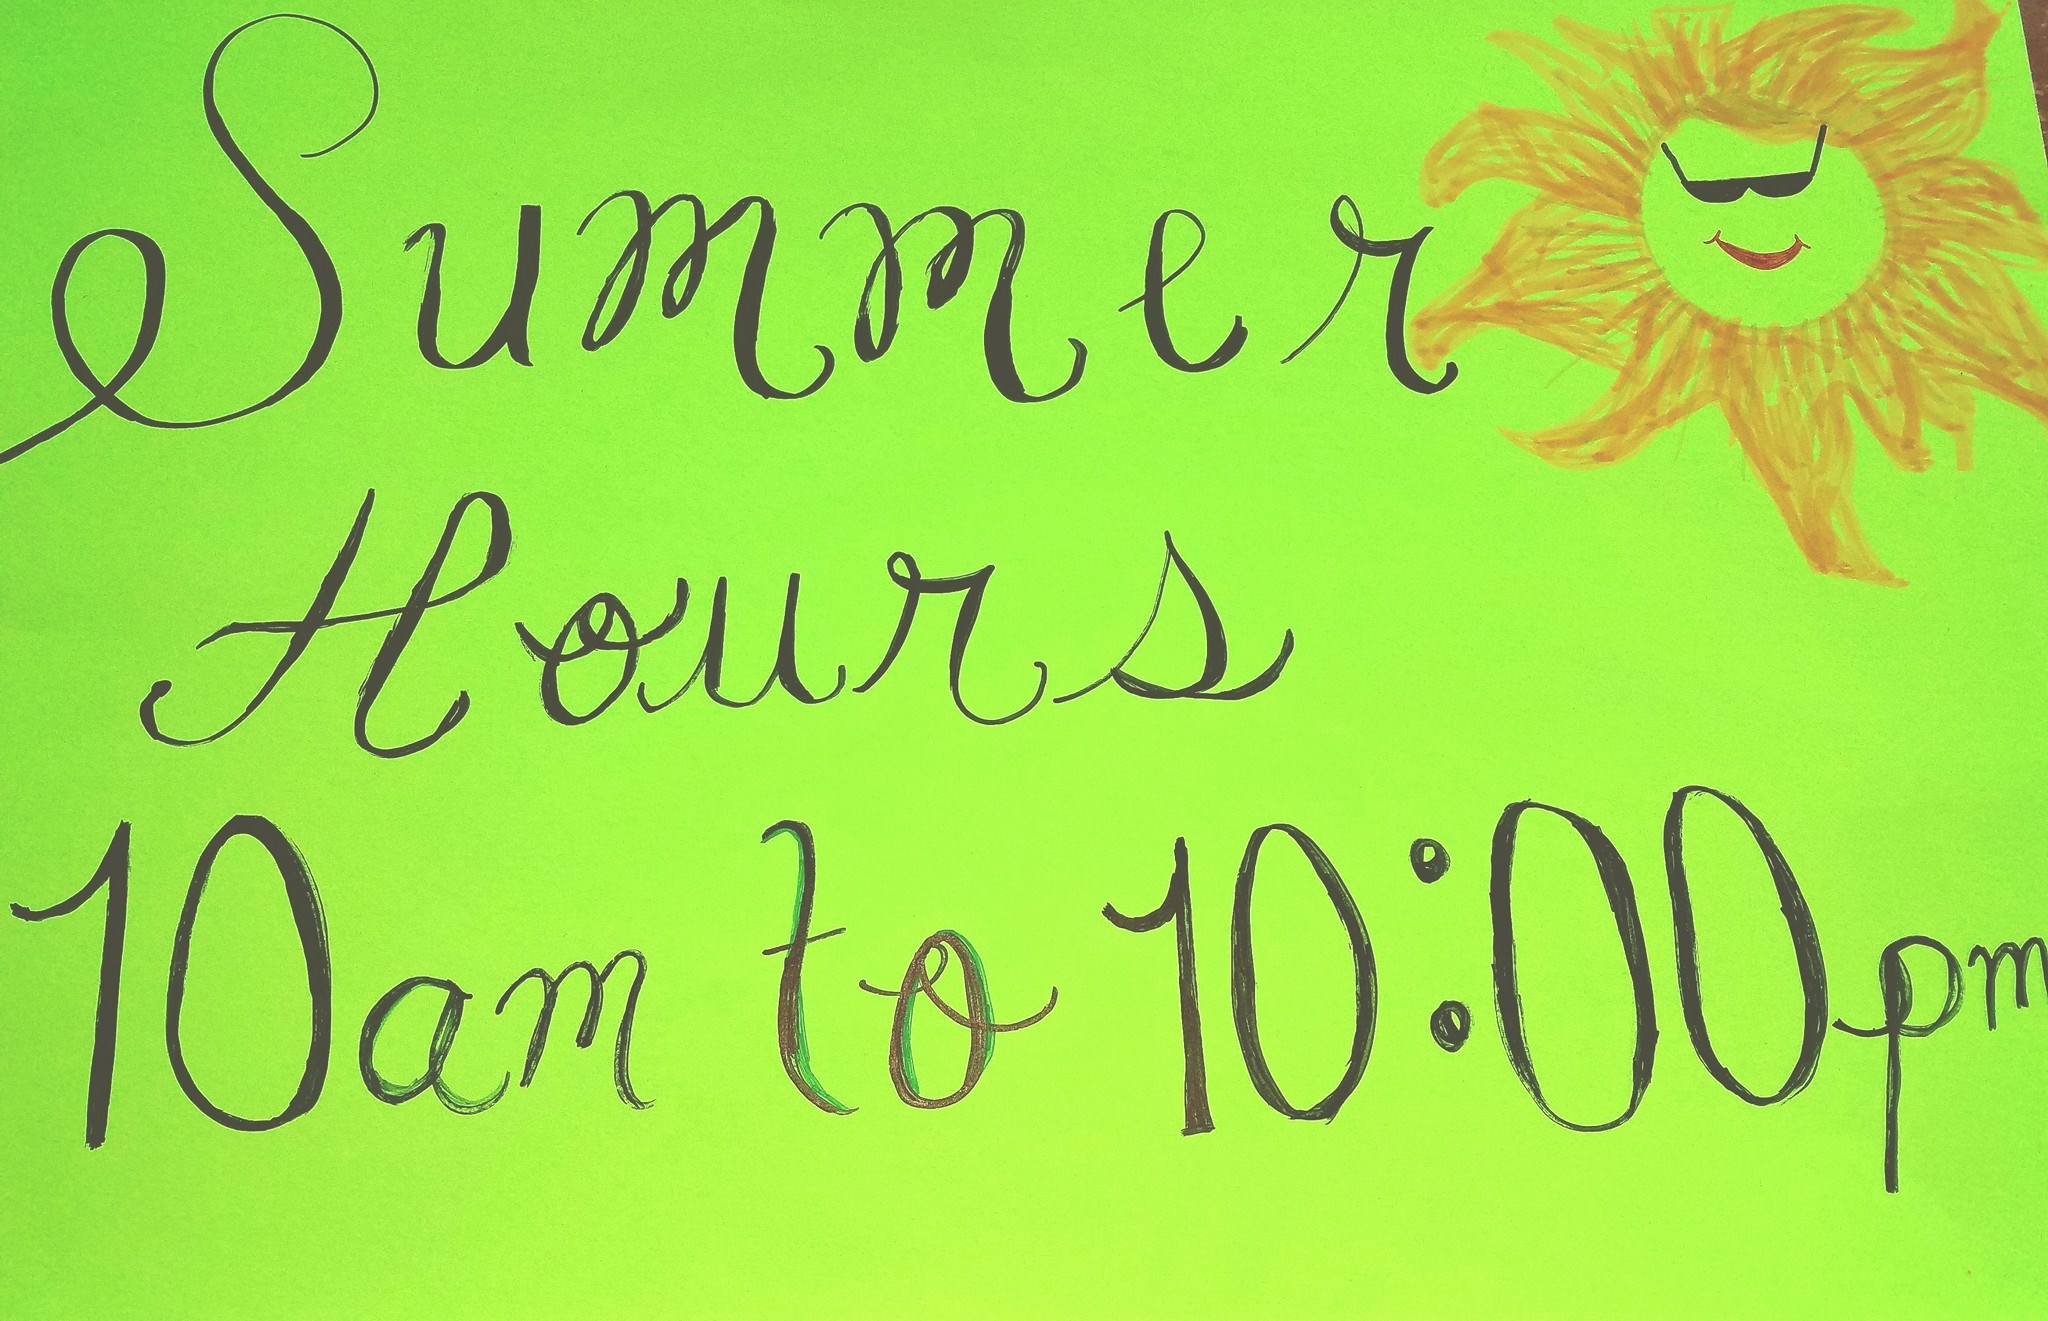 Summer
Hours
10am to 10:00pm